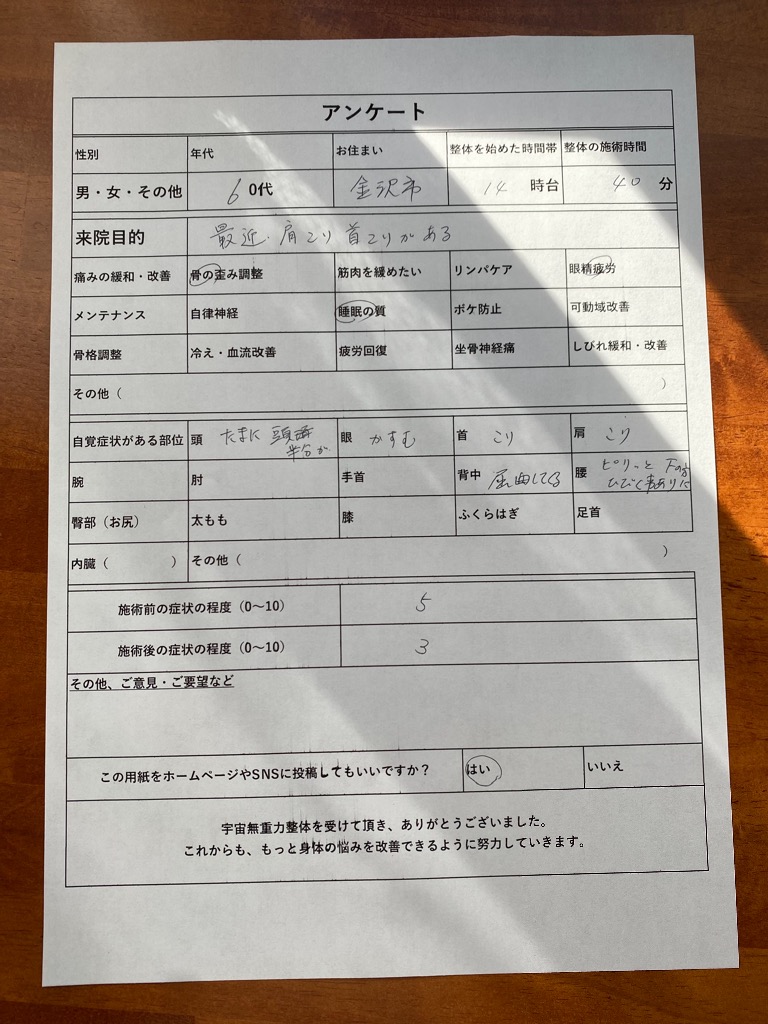 アンケート
性別 年代 お住まい 整体を始めた時間帯 整体の施術時間
男・女・その他 60代 金沢市 14 時台 40 分
来院目的 最近 肩こり 首こりがある
痛みの緩和・改善 骨の歪み調整 筋肉を緩めたい リンパケア 眼精疲労
メンテナンス 自律神経 睡眠の質 ボケ防止 可動域改善
骨格調整 冷え・血流改善 疲労回復 坐骨神経痛 しびれ緩和・改善
その他（ ）
自覚症状がある部位 頭 たまに 頭痛 半分が 眼 かすむ 首 こり 肩 こり
腕 肘 手首 背中 屈曲してる 腰 ピリっと 下の方 ひびく
臀部（お尻） 太もも 膝 ふくらはぎ 足首
内臓（ ） その他（ ）
施術前の症状の程度（0〜10） 5
施術後の症状の程度（0〜10） 3
その他、ご意見・ご要望など
この用紙をホームページやSNSに投稿してもいいですか？ はい いいえ
宇宙無重力整体を受けて頂き、ありがとうございました。
これからも、もっと身体の悩みを改善できるように努力していきます。